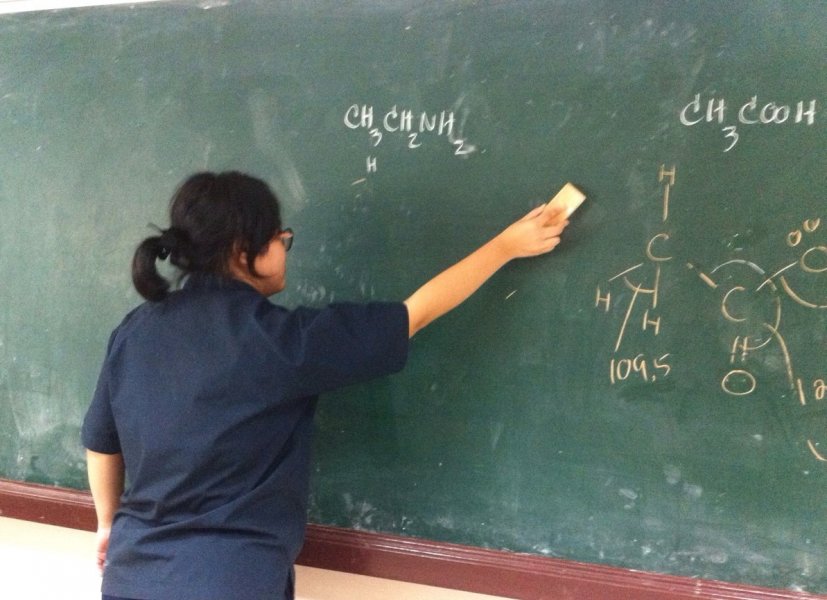 CH3CH2NH2
H
CH3COOH
H
C
H H
C
O
109.5
O